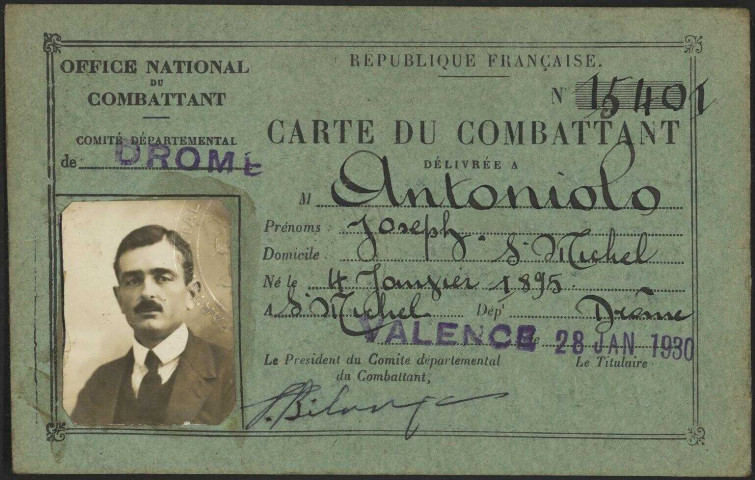 OFFICE NATIONAL
DU
COMBATTANT
COMITÉ DÉPARTEMENTAL
de DROME
RÉPUBLIQUE FRANÇAISE.
N° 15401
CARTE DU COMBATTANT
DÉLIVRÉE A
M Antoniolo
Prénoms : Joseph
Domicile : St Michel
Né le : 4 Janvier 1895
A St Michel Dépt Drôme
VALENCE le 28 JAN 1930
Le Président du Comité départemental
du Combattant,
Le Titulaire